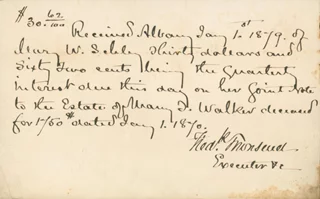 $30. 62/100
Received, Albany Jany 1st 1879. of
Mary W. Libbey Thirty dollars and
Sixty two cents being the Quarterly
interest due this day on her joint Note
to the Estate of Mary J. Walker deceased
for 1750$ dated Jany 1. 1870.
Fredk Townsend
Executor &c